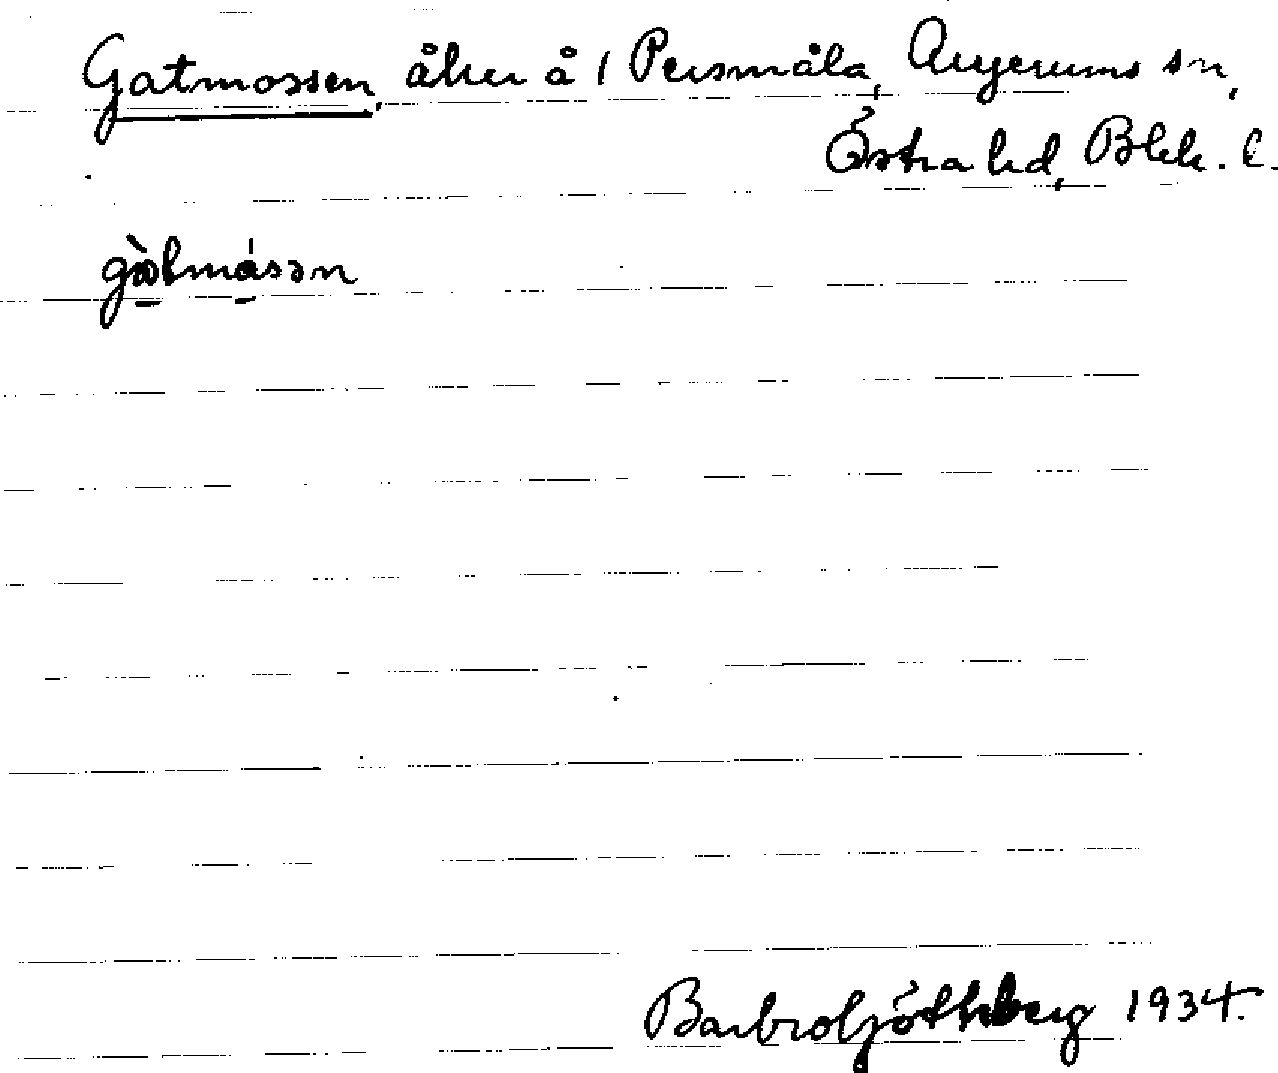 Gatmossen, åker å 1 Persmåla, Augerums sn,
Östra hd, Blek. l.
gàtmásən
Barbro Göthberg 1934.